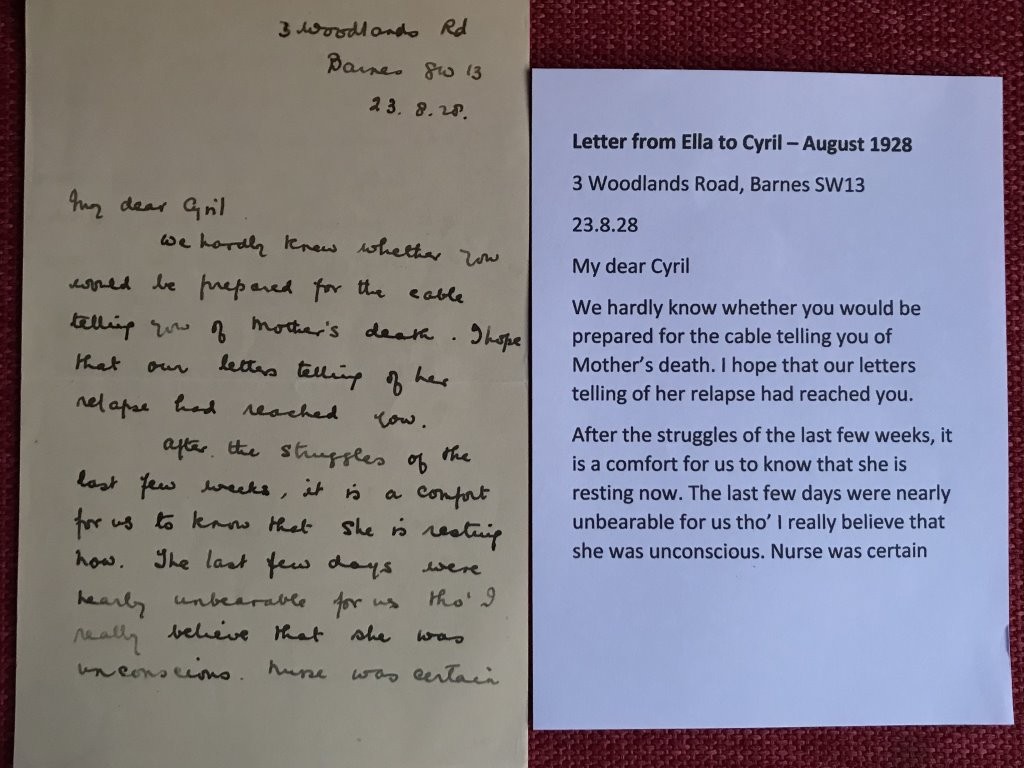 3 Woodlands Rd
Barnes SW 13
23. 8. 28.
My dear Cyril
We hardly knew whether you
would be prepared for the cable
telling you of Mother's death. I hope
that our letters telling of her
relapse had reached you.
After the struggles of the
last few weeks, it is a comfort
for us to know that she is resting
now. The last few days were
nearly unbearable for us tho' I
really believe that she was
unconscious. Nurse was certain
Letter from Ella to Cyril – August 1928
3 Woodlands Road, Barnes SW13
23.8.28
My dear Cyril
We hardly know whether you would be
prepared for the cable telling you of
Mother's death. I hope that our letters
telling of her relapse had reached you.
After the struggles of the last few weeks, it
is a comfort for us to know that she is
resting now. The last few days were nearly
unbearable for us tho' I really believe that
she was unconscious. Nurse was certain